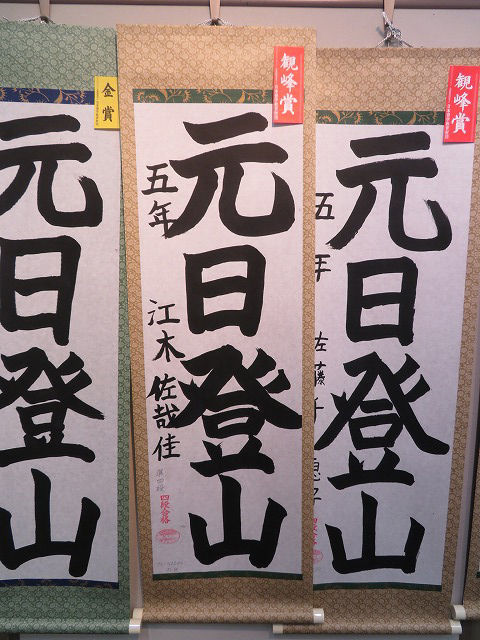 観峰賞
元日登山
五年
佐藤千恵子
観峰賞
元日登山
五年
江木佐哉佳
四段合格
金賞
元日登山